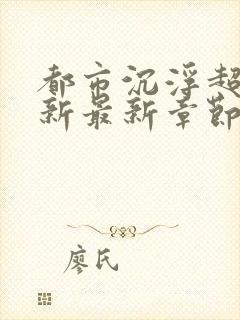 都市沉浮超
新最新章節
廖氏